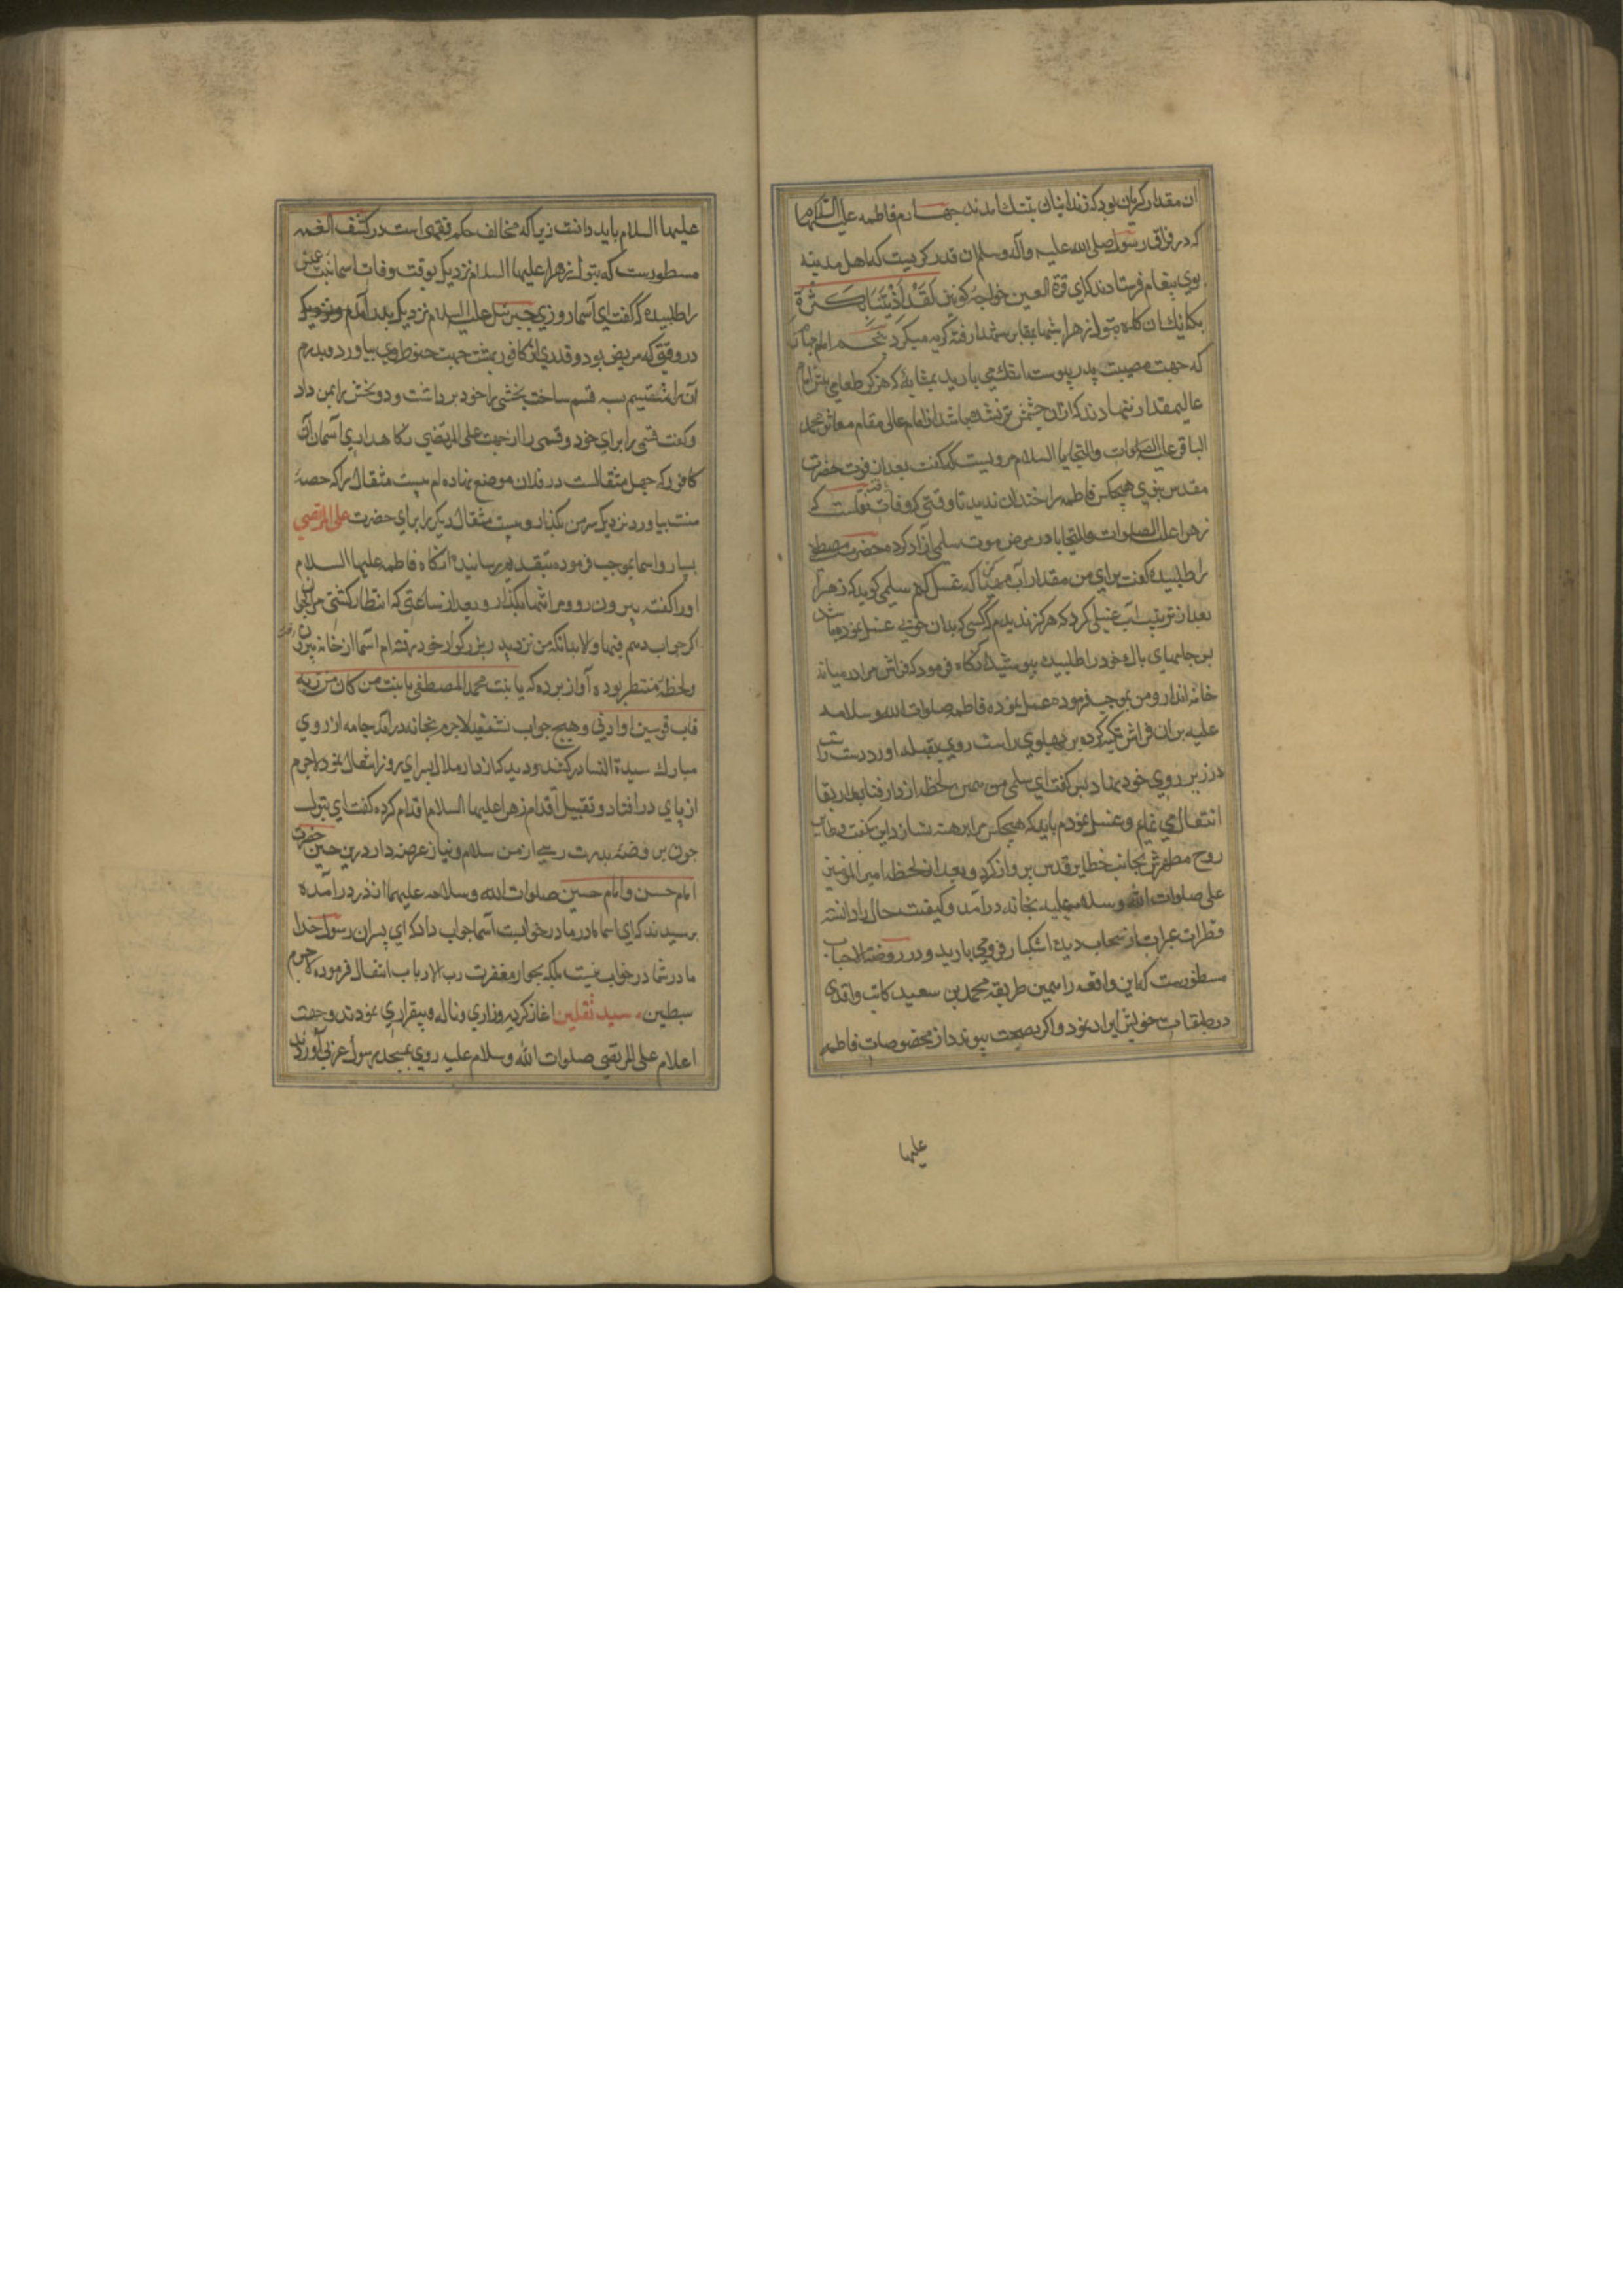 ان مقدار کریان بود که زندانیان بتنک امدند جهارم فاطمه علیها السلام
که در فراق رسول صلی الله علیه وآله وسلم ان قدر کریست که اهل مدینه
بوی پیغام فرستادند که ای قرة العین خواجهٔ کونین لَقَد اَذَیتَنَا بِکَثرَة
بکائك ان کاه بتول زهرا بمقابر شهدا رفته کریه میکرد پنجم امام
که جهت مصیبت پدر پیوسته اشك می بارید بمثابهٔ که هرکز طعامی پیش امام
عالیمقدار ننهادند که ازان چشمش تر نشده باشد از امام عالی مقام محمد
الباقر علیه الصلوات والتحایا السلام مرویست که کفت بعد از فوت حضرت
مقدس نبوی هیچکس فاطمه را خندان ندید تا وقتی که وفات یافت نقلست که
زهرا علیه الصلوات والتحایا در مرض موت سلمی آزاد کرده حضرت مصطفی
را طلبیده کفت برای من مقدار آب مهیا کن که غسل کنم سلمی کوید که زهرا
بعد از ترتیب آب غسلی کرد که هرکز ندیدم که کسی که بدان خوبی غسل نموده باشد
بس جامهای پاك خود را طلبیده بپوشید آنکاه فرمود که فراش مرا در میانه
خانه انداز و من بموجب فرموده عمل نموده فاطمه صلوات الله وسلامه
علیه بران فراش تکیه کرده بر پهلوی راست روی بقبله اورد و دست راست
در زیر روی خود نهاد بس کفت ای سلمی من همین لحظه از دار فنا بدار بقا
انتقال می نمایم و غسل نمودم باید که هیچکس مرا برهنه نسازد این کفت و طایر
روح مطهرش بجانب خطایر قدس پرواز کرد و بعد از لحظه امیر المومنین
علی صلوات الله وسلامه علیه بخانه درآمد و کیفیت حال را دانسته
قطرات عبرات از سحاب دیده اشکبار فرو می بارید و در روضة الاحباب
مسطورست که این واقعه را بهمین طریقه محمد بن سعید کاتب واقدی
در طبقات خویش ایراد نموده و اکر بصحت پیوندد از مخصوصات فاطمه
علیها
علیها السلام باید دانست زیرا که مخالف حکم فقهی است در کشف الغمه
مسطورست که بتول زهرا علیها السلام نزدیک بوقت وفات اسما بنت عمیس
را طلبیده کفت ای آسما روزی جبرئیل علیه السلام نزدیک پدرم آمد
در وقتی که مریض بود و قدری از کافور بهشت جهت حنوط وی بیاورد و پدرم
آن را تقسیم بسه قسم ساخت بخشی را خود برداشت و دو بخش را بمن داد
وکفت قسمی را برای خود و قسمی را از جهت علی المرتضی نکاهدار ای آسما ان
کافور که چهل مثقالست در فلان موضع نهاده ام بیست مثقال را که حصهٔ
منست بیاور و نزدیک سر من بکذار و بیست مثقال دیکر را برای حضرت علی المرتضی
بسپار و اسما بموجب فرموده بتقدیم رسانید انکاه فاطمه علیها السلام
اورا کفت بیرون رو و مرا تنها بکذار و بعد از ساعتی که انتظار کشی مرا بخوان
اکر جواب دهم فبها والا بدانکه من نزدیک پدر بزرکوار خود رفته ام آسما از خانه بیرون رفت
ولحظهٔ منتظر بوده آواز برده که یا بنت محمد المصطفی یا بنت من کان من ربه
قاب قوسین او ادنی و هیچ جواب نشنید لاجرم بخانه درآمد جامه از روی
مبارك سیدة النسا درکشید و دید که از دار ملال بسرای روز انتقال نمود لاجرم
از پای درافتاد و تقبیل اقدام زهرا علیها السلام اقدام کرده کفت ای بتول
چون بر وضهٔ پدرت رسی از من سلام و نیاز عرضه دار درین حین حضرت
امام حسن و امام حسین صلوات الله وسلامه علیهما از در درآمده
پرسیدند که ای اسما مادر ما در خوابست آسما جواب داد که ای پسران رسول خدا
مادر شما در خواب نیست بلکه بجوار مغفرت رب الارباب انتقال فرموده لاجرم
سبطین سید ثقلین اغاز کریه وزاری وناله و بیقراری نمودند و جهت
اعلام علی المرتضی صلوات الله وسلام علیه روی بمسجد رسول عربی آوردند